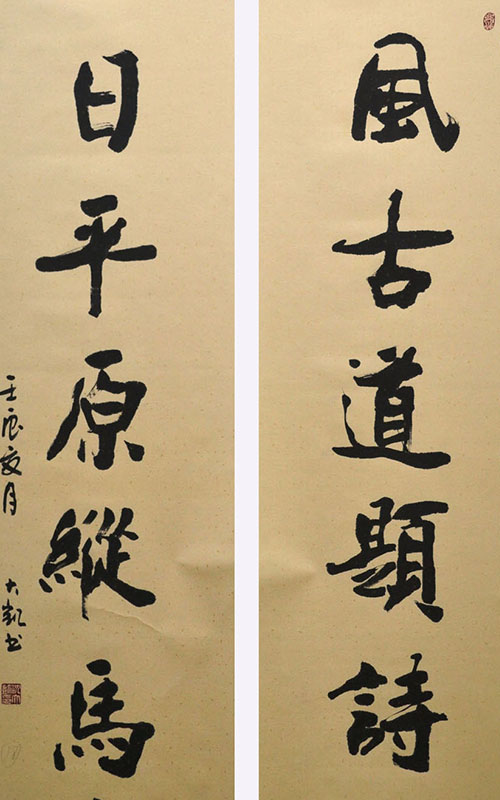 風古道題詩
日平原縱馬
壬辰夏月 大凱書